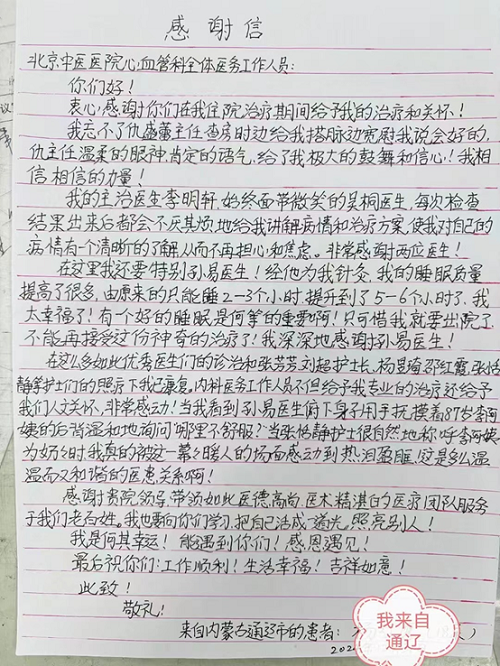 感谢信
北京中医医院心血管科全体医务工作人员:
你们好!
衷心感谢你们在我住院治疗期间给予我的治疗和关怀!
我忘不了仇盛蕾主任查房时边给我搭脉边宽慰我说会好的,
仇主任温柔的眼神肯定的语气,给了我极大的鼓舞和信心!我相
信相信的力量!
我的主治医生李明轩,始终面带微笑的吴桐医生,每次检查
结果出来后都会不厌其烦地给我讲解病情和治疗方案,使我对自己的
病情有个清晰的了解,从而不再担心和焦虑。非常感谢两位医生!
在这里我还要特别孙易医生!经他为我针灸,我的睡眠质量
提高了很多,由原来的只能睡2-3个小时,提升到了5-6个小时了,我
太幸福了!有个好的睡眠是何等的重要啊!只可惜我就要出院了
不能再接受这份神奇的治疗了!我深深地感谢孙易医生!
在这么多如此优秀医生们的诊治和张芳芳刘超护士长、杨昱琦邵红霞、张恬
静等护士们的照疗下我已康复,内科医务工作人员不但给予我专业的治疗还给予
我们人文关怀,非常感动!当我看到孙易医生俯下身子用手抚摸着87岁李阿
姨的后背温和地询问"哪里不舒服?"当张恬静护士很自然地称呼李阿姨
为奶奶时我真的被这一幕幕暖人的场面感动到热泪盈眶,这是多么温
温而又和谐的医患关系啊!
感谢贵院领导,带领如此医德高尚 医术精湛的医疗团队服务
于我们老百姓。我也要向你们学习,把自己活成一道光,照亮别人!
我是何其幸运!能遇到你们!感恩遇见!
最后祝你们:工作顺利!生活幸福!吉祥如意!
此致!
敬礼!
来自内蒙古通辽市的患者:
我来自
通辽